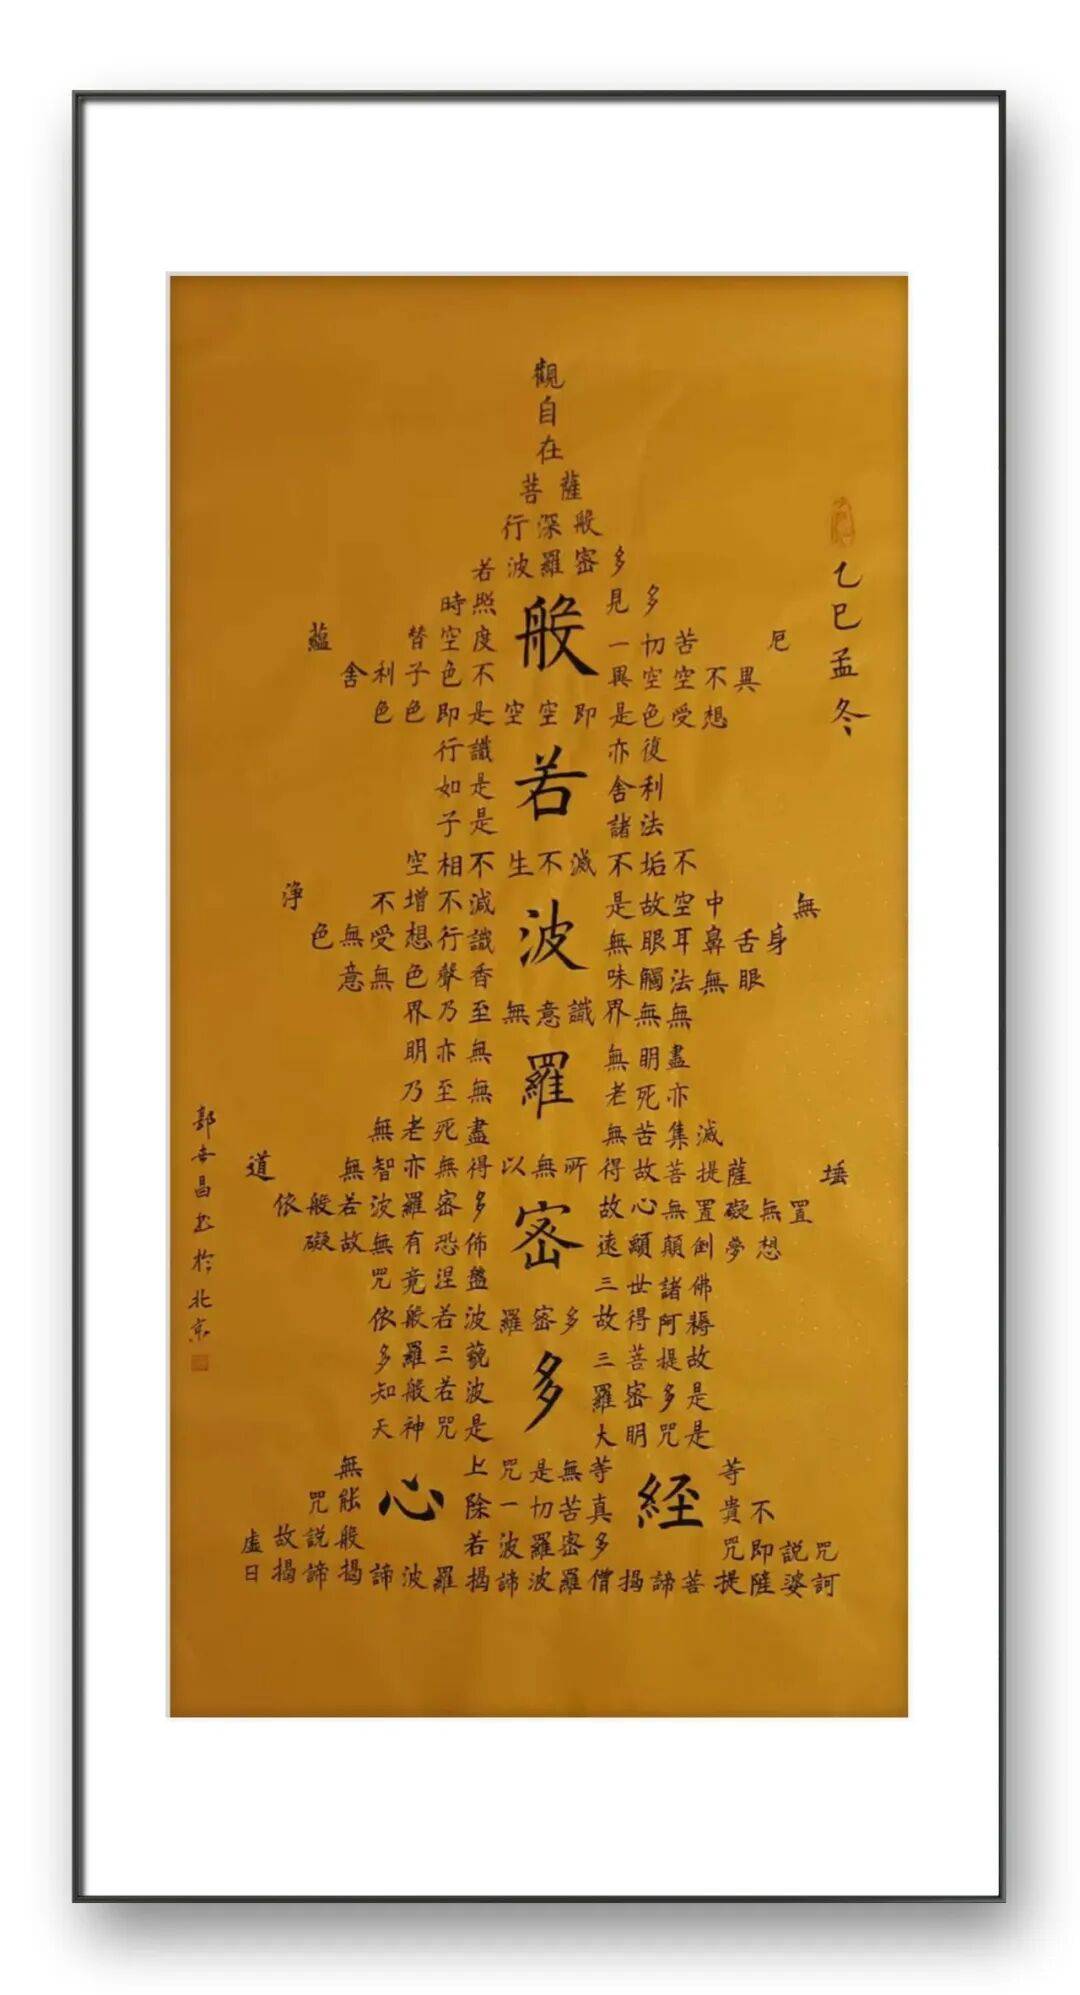 觀
自
在
菩薩
行深般
若波羅密多
時照見多
般
蘊替空度一切苦厄
舍利子色不異空空不異
色色即是空空即是色受想
行識亦復
若
如是舍利
子是諸法
空相不生不滅不垢不
淨不增不減是故空中無
波
色無受想行識無眼耳鼻舌身
意無色聲香味觸法無眼
界乃至無意識界無無
明亦無無明盡
羅
乃至無老死亦
無老死盡無苦集滅
道無智亦無得以無所得故菩提薩埵
依般若波羅密多故心無罣礙無罣
密
礙故無有恐佈遠顛倒夢想
咒竟涅盤三世諸佛
依般若波羅密多故得阿耨
多羅三藐三菩提故
多
知般若波羅密多是
天神咒是大明咒是
無上咒是無等等
心經
咒能除一切苦真貴不
虛故説般若波羅密多咒即説咒
日揭諦揭諦波羅揭諦波羅僧揭諦菩提薩婆訶
乙巳孟冬
昌書於北京